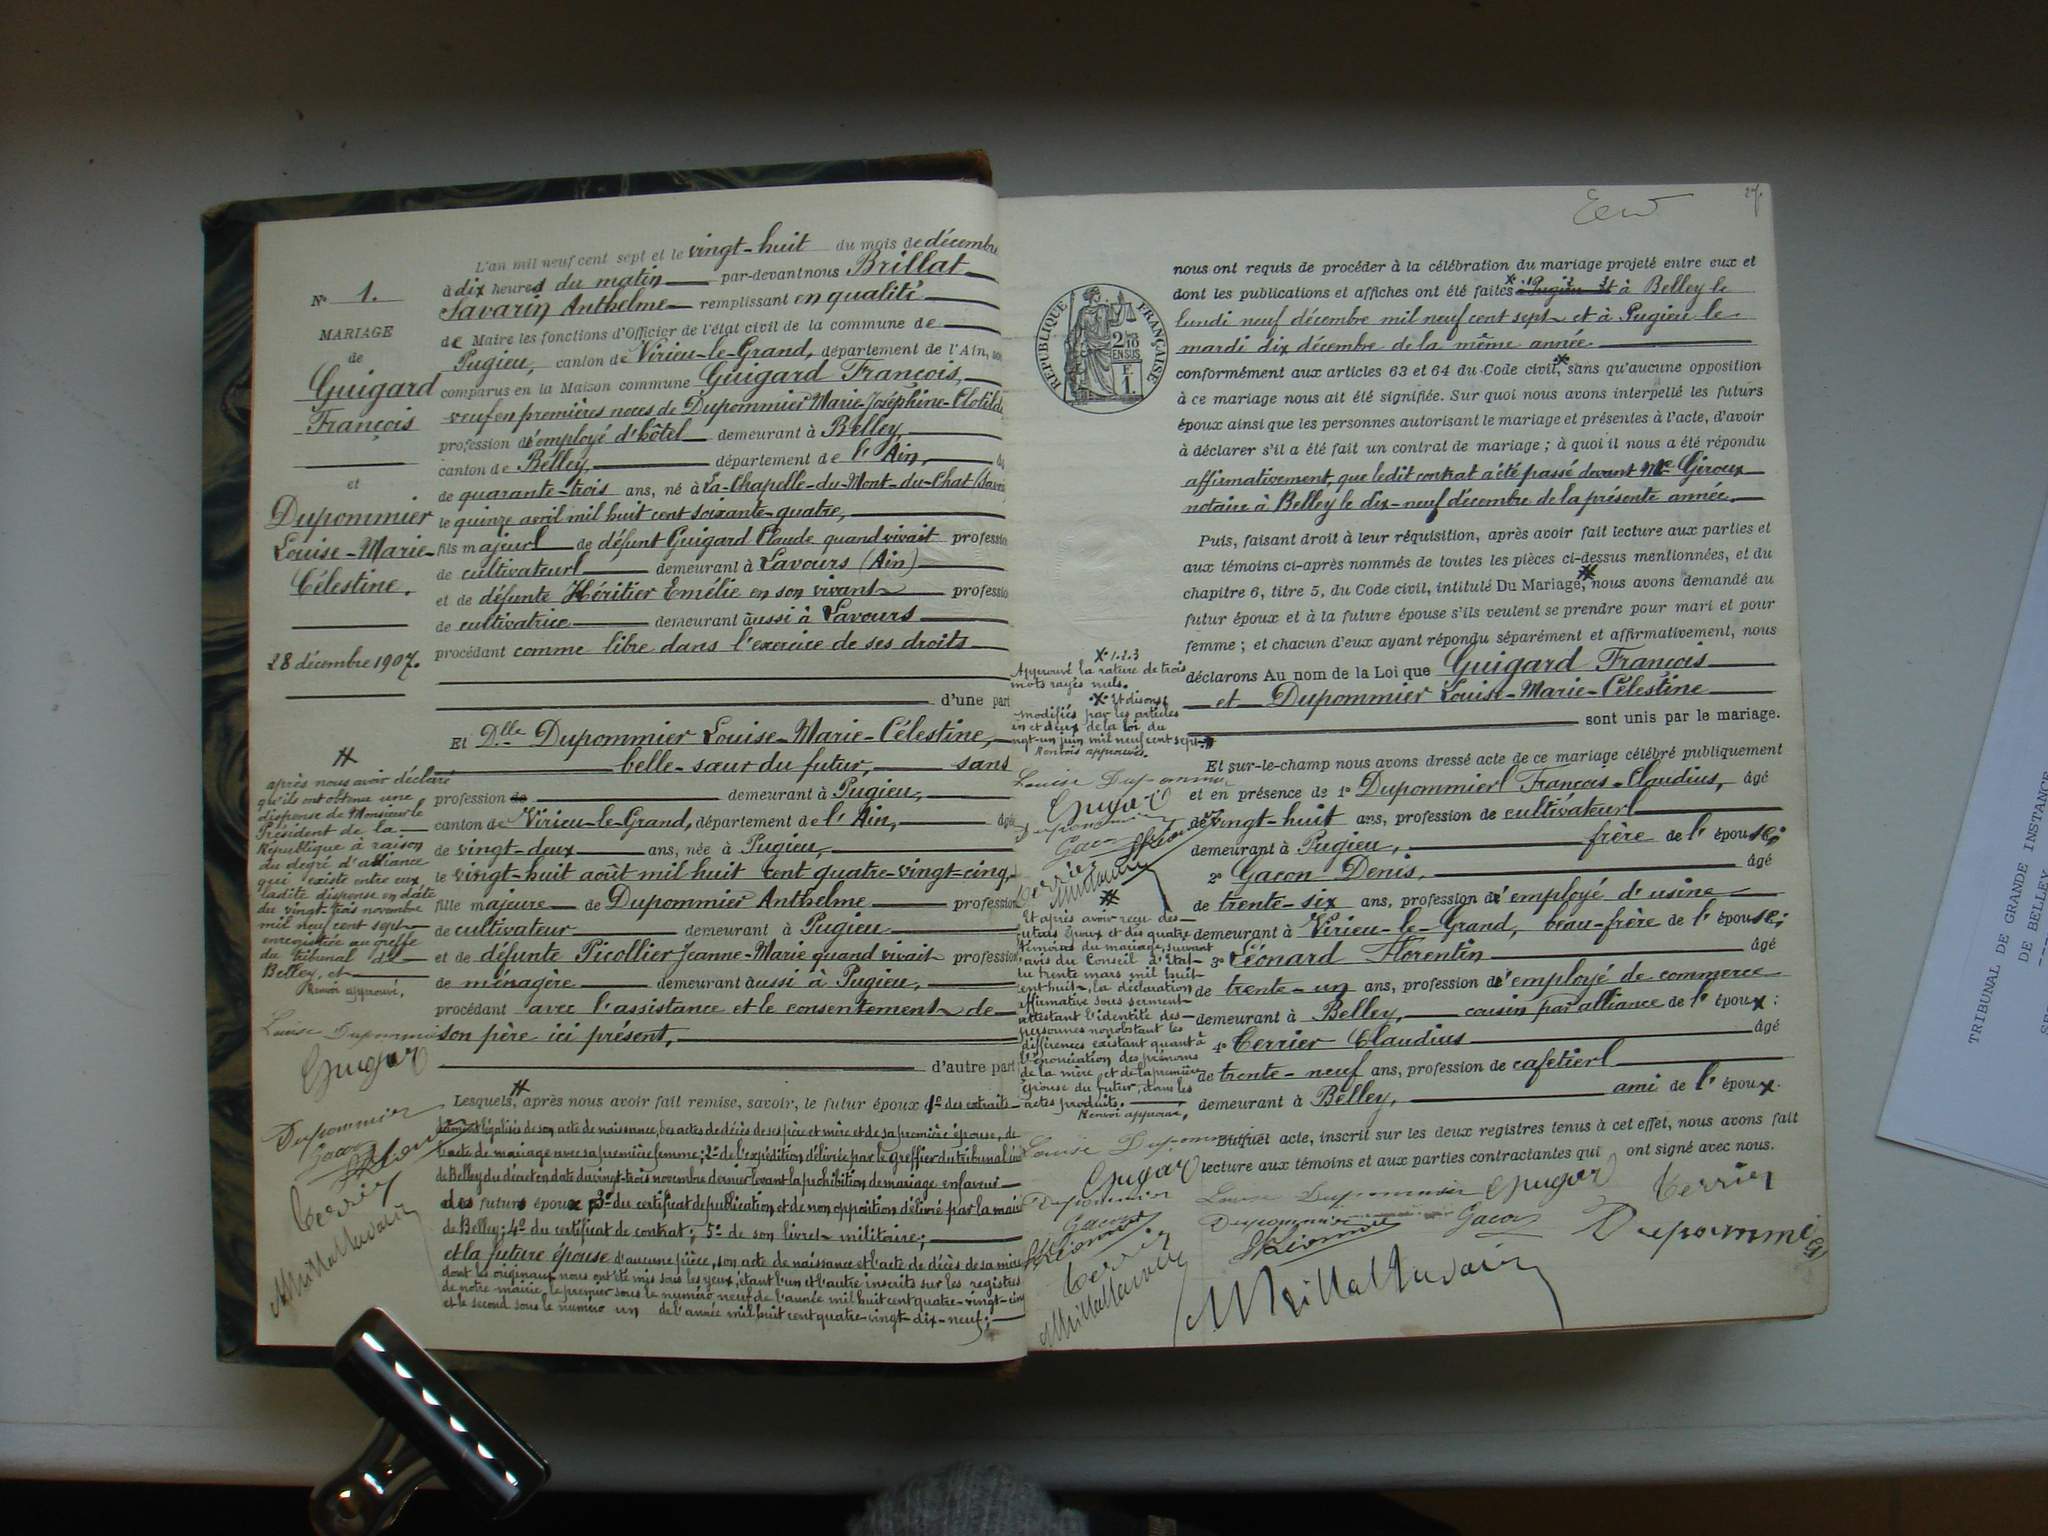 L'an mil neuf cent sept et le vingt-huit du mois de décembre
à dix heures du matin par-devant nous Brillat
Savarin Anthelme remplissant en qualité
de Maire les fonctions d'Officier de l'état civil de la commune de
Pugieu, canton de Virieu-le-Grand, département de l'Ain, son
comparus en la Maison commune Guigard François,
veuf en premières noces de Dupommier Marie-Joséphine-Clotilde
profession d'employé d'hôtel demeurant à Belley
canton de Belley, département de l'Ain, âg
de quarante-trois ans, né à La-Chapelle-du-Mont-du-Chat (Savoi
le quinze avril mil huit cent soixante-quatre,
fils majeur de défunt Guigard Claude quand vivait profession
de cultivateur demeurant à Lavours (Ain)
et de défunte Héritier Emélie en son vivant profession
de cultivatrice demeurant aussi à Lavours
procédant comme libre dans l'exercice de ses droits
d'une part
Et Dlle Dupommier Louise-Marie-Célestine,
belle-sœur du futur, sans
profession de demeurant à Pugieu,
canton de Virieu-le-Grand, département de l'Ain, âgée
de vingt-deux ans, née à Pugieu,
le vingt-huit août mil huit cent quatre-vingt-cinq,
fille majeure de Dupommier Anthelme profession
de cultivateur demeurant à Pugieu
et de défunte Picollier Jeanne-Marie quand vivait profession
de ménagère demeurant aussi à Pugieu,
procédant avec l'assistance et le consentement de
son père ici présent,
d'autre part
Lesquels, après nous avoir fait remise, savoir, le futur époux 1º des extraits
dûment légalisés de son acte de naissance, des actes de décès de ses père et mère et de sa première épouse, de
l'acte de mariage avec sa première femme; 2º de l'expédition délivrée par le greffier du tribunal civ
de Belley du décret en date du vingt-trois novembre dernier levant la prohibition de mariage en faveur
des futurs époux 3º du certificat de publication et de non opposition délivré par la mairi
de Belley; 4º du certificat de contrat; 5º de son livret militaire;
et la future épouse d'aucune pièce, son acte de naissance et l'acte de décès de sa mère
dont les originaux nous ont été mis sous les yeux, étant l'un et l'autre inscrits sur les registres
de notre mairie, le premier sous le numéro neuf de l'année mil huit cent quatre-vingt-cinq
et le second sous le numéro un de l'année mil huit cent quatre-vingt-dix-neuf;
Nº 1.
MARIAGE
de
Guigard
François
et
Dupommier
Louise-Marie-
Célestine.
28 décembre 1907.
#
après nous avoir déclaré
qu'ils ont obtenu une
dispense de Monsieur le
Président de la
République à raison
du degré d'alliance
qui existe entre eux
ladite dispense en date
du vingt-trois novembre
mil neuf cent sept
enregistrée au greffe
du tribunal de
Belley, et
Renvoi approuvé,
Louise Dupommier
Guigar
Dupommier
Gacon
Léonard
Terrier
ABrillatSavarin
27.
RÉPUBLIQUE FRANÇAISE
nous ont requis de procéder à la célébration du mariage projeté entre eux et
dont les publications et affiches ont été faites à Pugieu et à Belley le
lundi neuf décembre mil neuf cent sept et à Pugieu le
mardi dix décembre de la même année
conformément aux articles 63 et 64 du Code civil, sans qu'aucune opposition
à ce mariage nous ait été signifiée. Sur quoi nous avons interpellé les futurs
époux ainsi que les personnes autorisant le mariage et présentes à l'acte, d'avoir
à déclarer s'il a été fait un contrat de mariage; à quoi il nous a été répondu
affirmativement, que ledit contrat a été passé devant Me Giroux
notaire à Belley le dix-neuf décembre de la présente année.
Puis, faisant droit à leur réquisition, après avoir fait lecture aux parties et
aux témoins ci-après nommés de toutes les pièces ci-dessus mentionnées, et du
chapitre 6, titre 5, du Code civil, intitulé Du Mariage, # nous avons demandé au
futur époux et à la future épouse s'ils veulent se prendre pour mari et pour
femme; et chacun d'eux ayant répondu séparément et affirmativement, nous
déclarons Au nom de la Loi que Guigard François
et Dupommier Louise-Marie-Célestine
sont unis par le mariage.
Et sur-le-champ nous avons dressé acte de ce mariage célébré publiquement
et en présence de 1º Dupommier François-Claudius, âgé
de vingt-huit ans, profession de cultivateur
demeurant à Pugieu, frère de l'épouse;
2º Gacon Denis, âgé
de trente-six ans, profession d'employé d'usine
demeurant à Virieu-le-Grand, beau-frère de l'épouse;
3º Léonard Florentin âgé
de trente-un ans, profession d'employé de commerce
demeurant à Belley, cousin par alliance de l'époux;
4º Terrier Claudius âgé
de trente-neuf ans, profession de cafetier
demeurant à Belley, ami de l'époux.
Duquel acte, inscrit sur les deux registres tenus à cet effet, nous avons fait
lecture aux témoins et aux parties contractantes qui ont signé avec nous.
Louise Dupommier Guigar Terrier
Dupommier Gacon Dupommier
Léonard
ABrillatSavarin
X 1.2.3
Approuvé la rature de trois
mots rayés nuls.
X Et disons
modifiés par les articles
un et deux de la loi du
vingt-un juin mil neuf cent sept
Renvois approuvés.
Louise Dupommier
Guigar
Dupommier
Gacon Léonard
Terrier
#
Et après avoir reçu des
futurs époux et des quatre
témoins du mariage, suivant
l'avis du Conseil d'Etat
du trente mars mil huit
cent huit, la déclaration
affirmative sous serment
attestant l'identité des
personnes nonobstant les
différences existant quant à
l'énonciation des prénoms
de la mère et de la première
épouse du futur, dans les
actes produits.
Renvoi approuvé,
Louise Dupommier
Guigar
Dupommier
Gacon
Léonard
Terrier
ABrillatSavarin
TRIBUNAL DE GRANDE INSTANCE
DE BELLEY